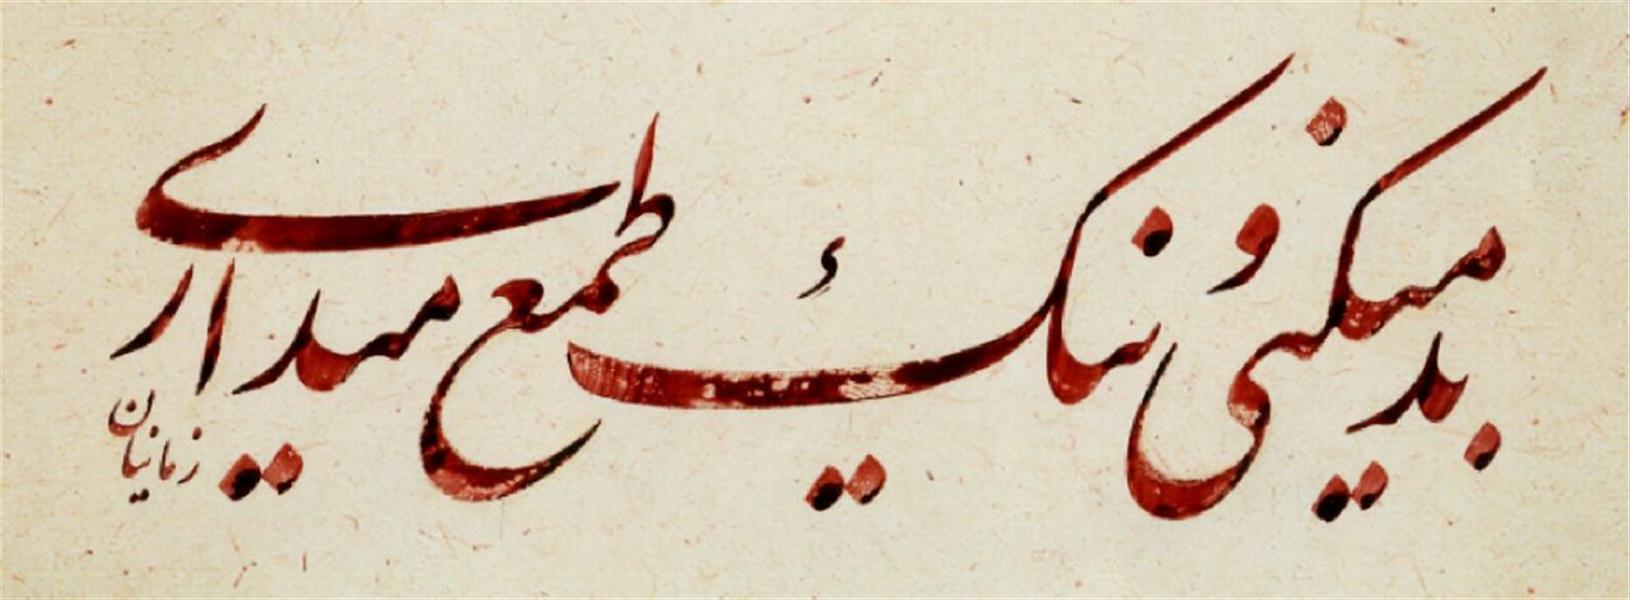 بد میکنی و نیک طمع میداری
زمانیان